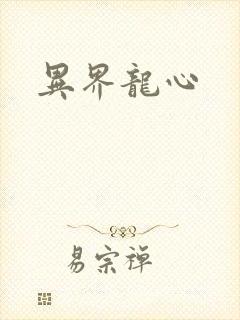 異界龍心
易宗禪